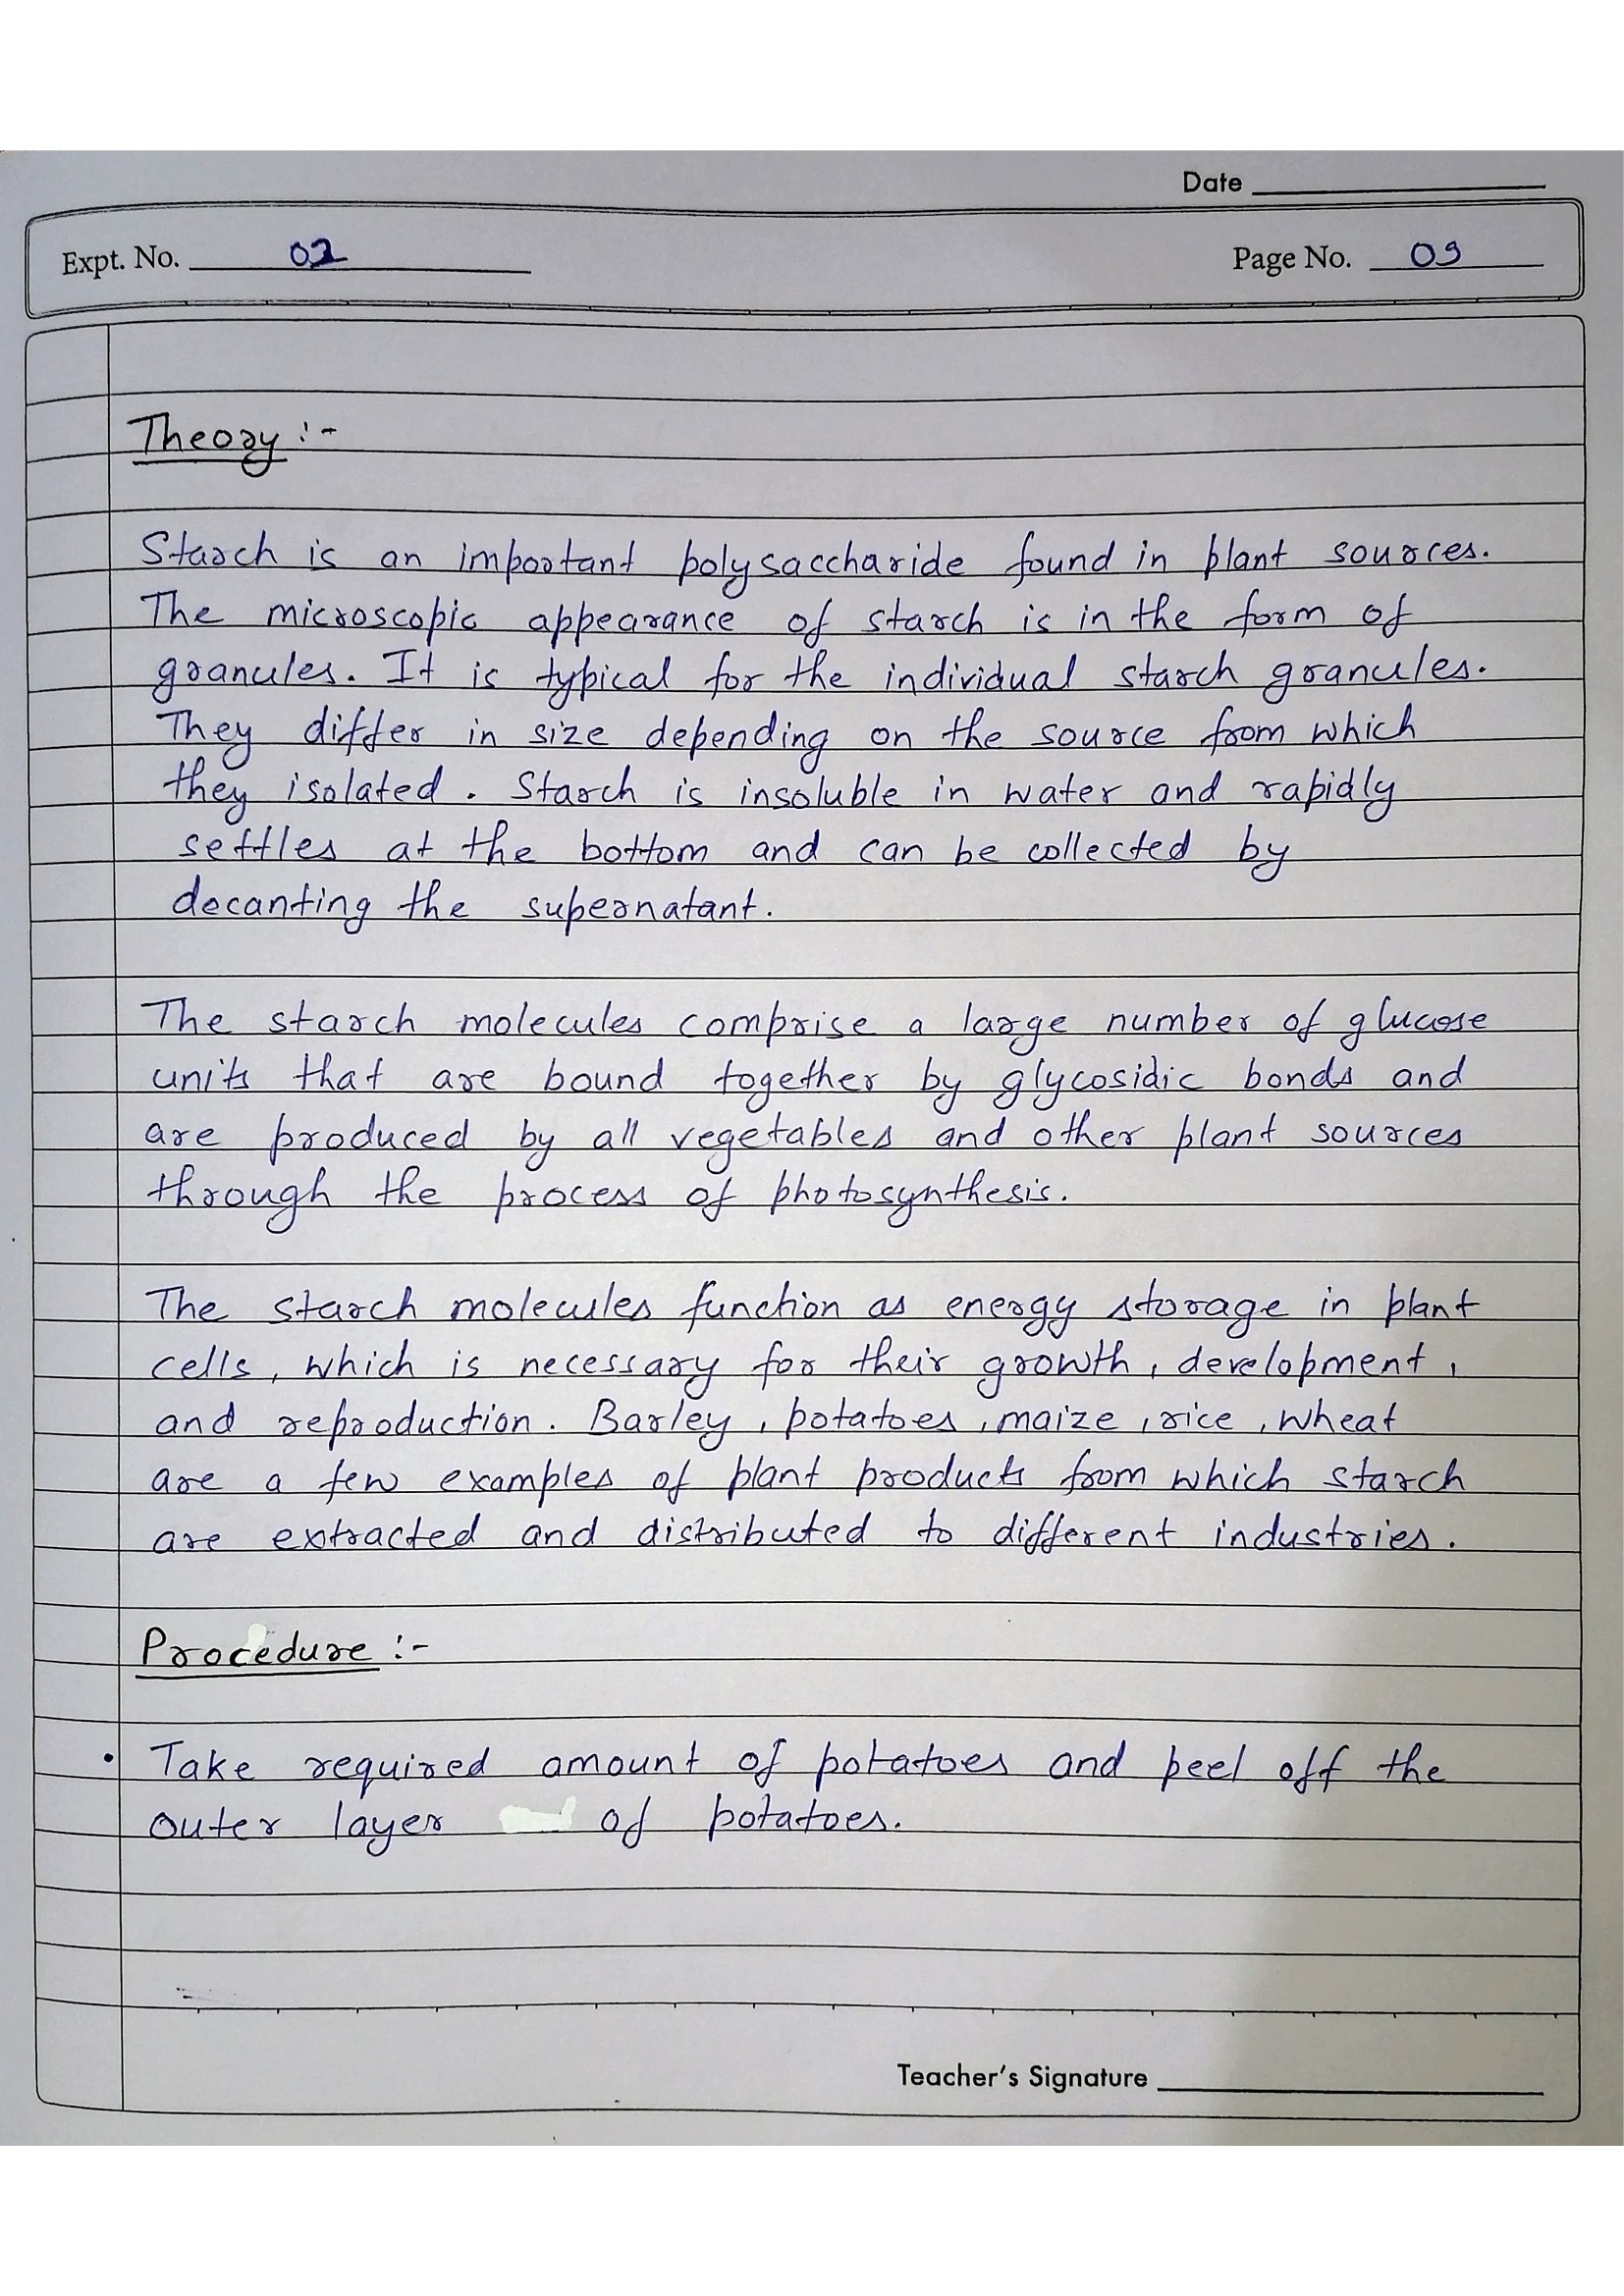 Date
Expt. No. 02
Page No. 03
Theory :-
Starch is an important polysaccharide found in plant sources.
The microscopic appearance of starch is in the form of
granules. It is typical for the individual starch granules.
They differ in size depending on the source from which
they isolated. Starch is insoluble in water and rapidly
settles at the bottom and can be collected by
decanting the supernatant.
The starch molecules comprise a large number of glucose
units that are bound together by glycosidic bonds and
are produced by all vegetables and other plant sources
through the process of photosynthesis.
The starch molecules function as energy storage in plant
cells, which is necessary for their growth, development,
and reproduction. Barley, potatoes, maize, rice, wheat
are a few examples of plant products from which starch
are extracted and distributed to different industries.
Procedure :-
• Take required amount of potatoes and peel off the
outer layer of potatoes.
Teacher's Signature